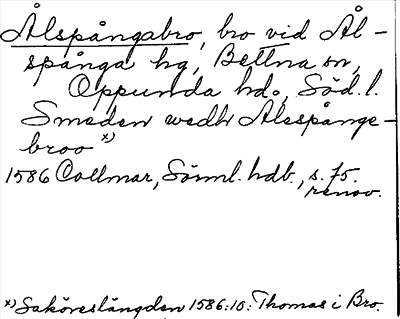 Ålspångabro, bro vid Ål-
spånga hg, Bettna sn,
Oppunda hd., Söd. l.
Smeden wedh Alespånge-
broo x)
1586 Collmar, Sörml. hdb., s. 75.
renov.
x) Saköreslängden 1586:10: Thomas i Bro.